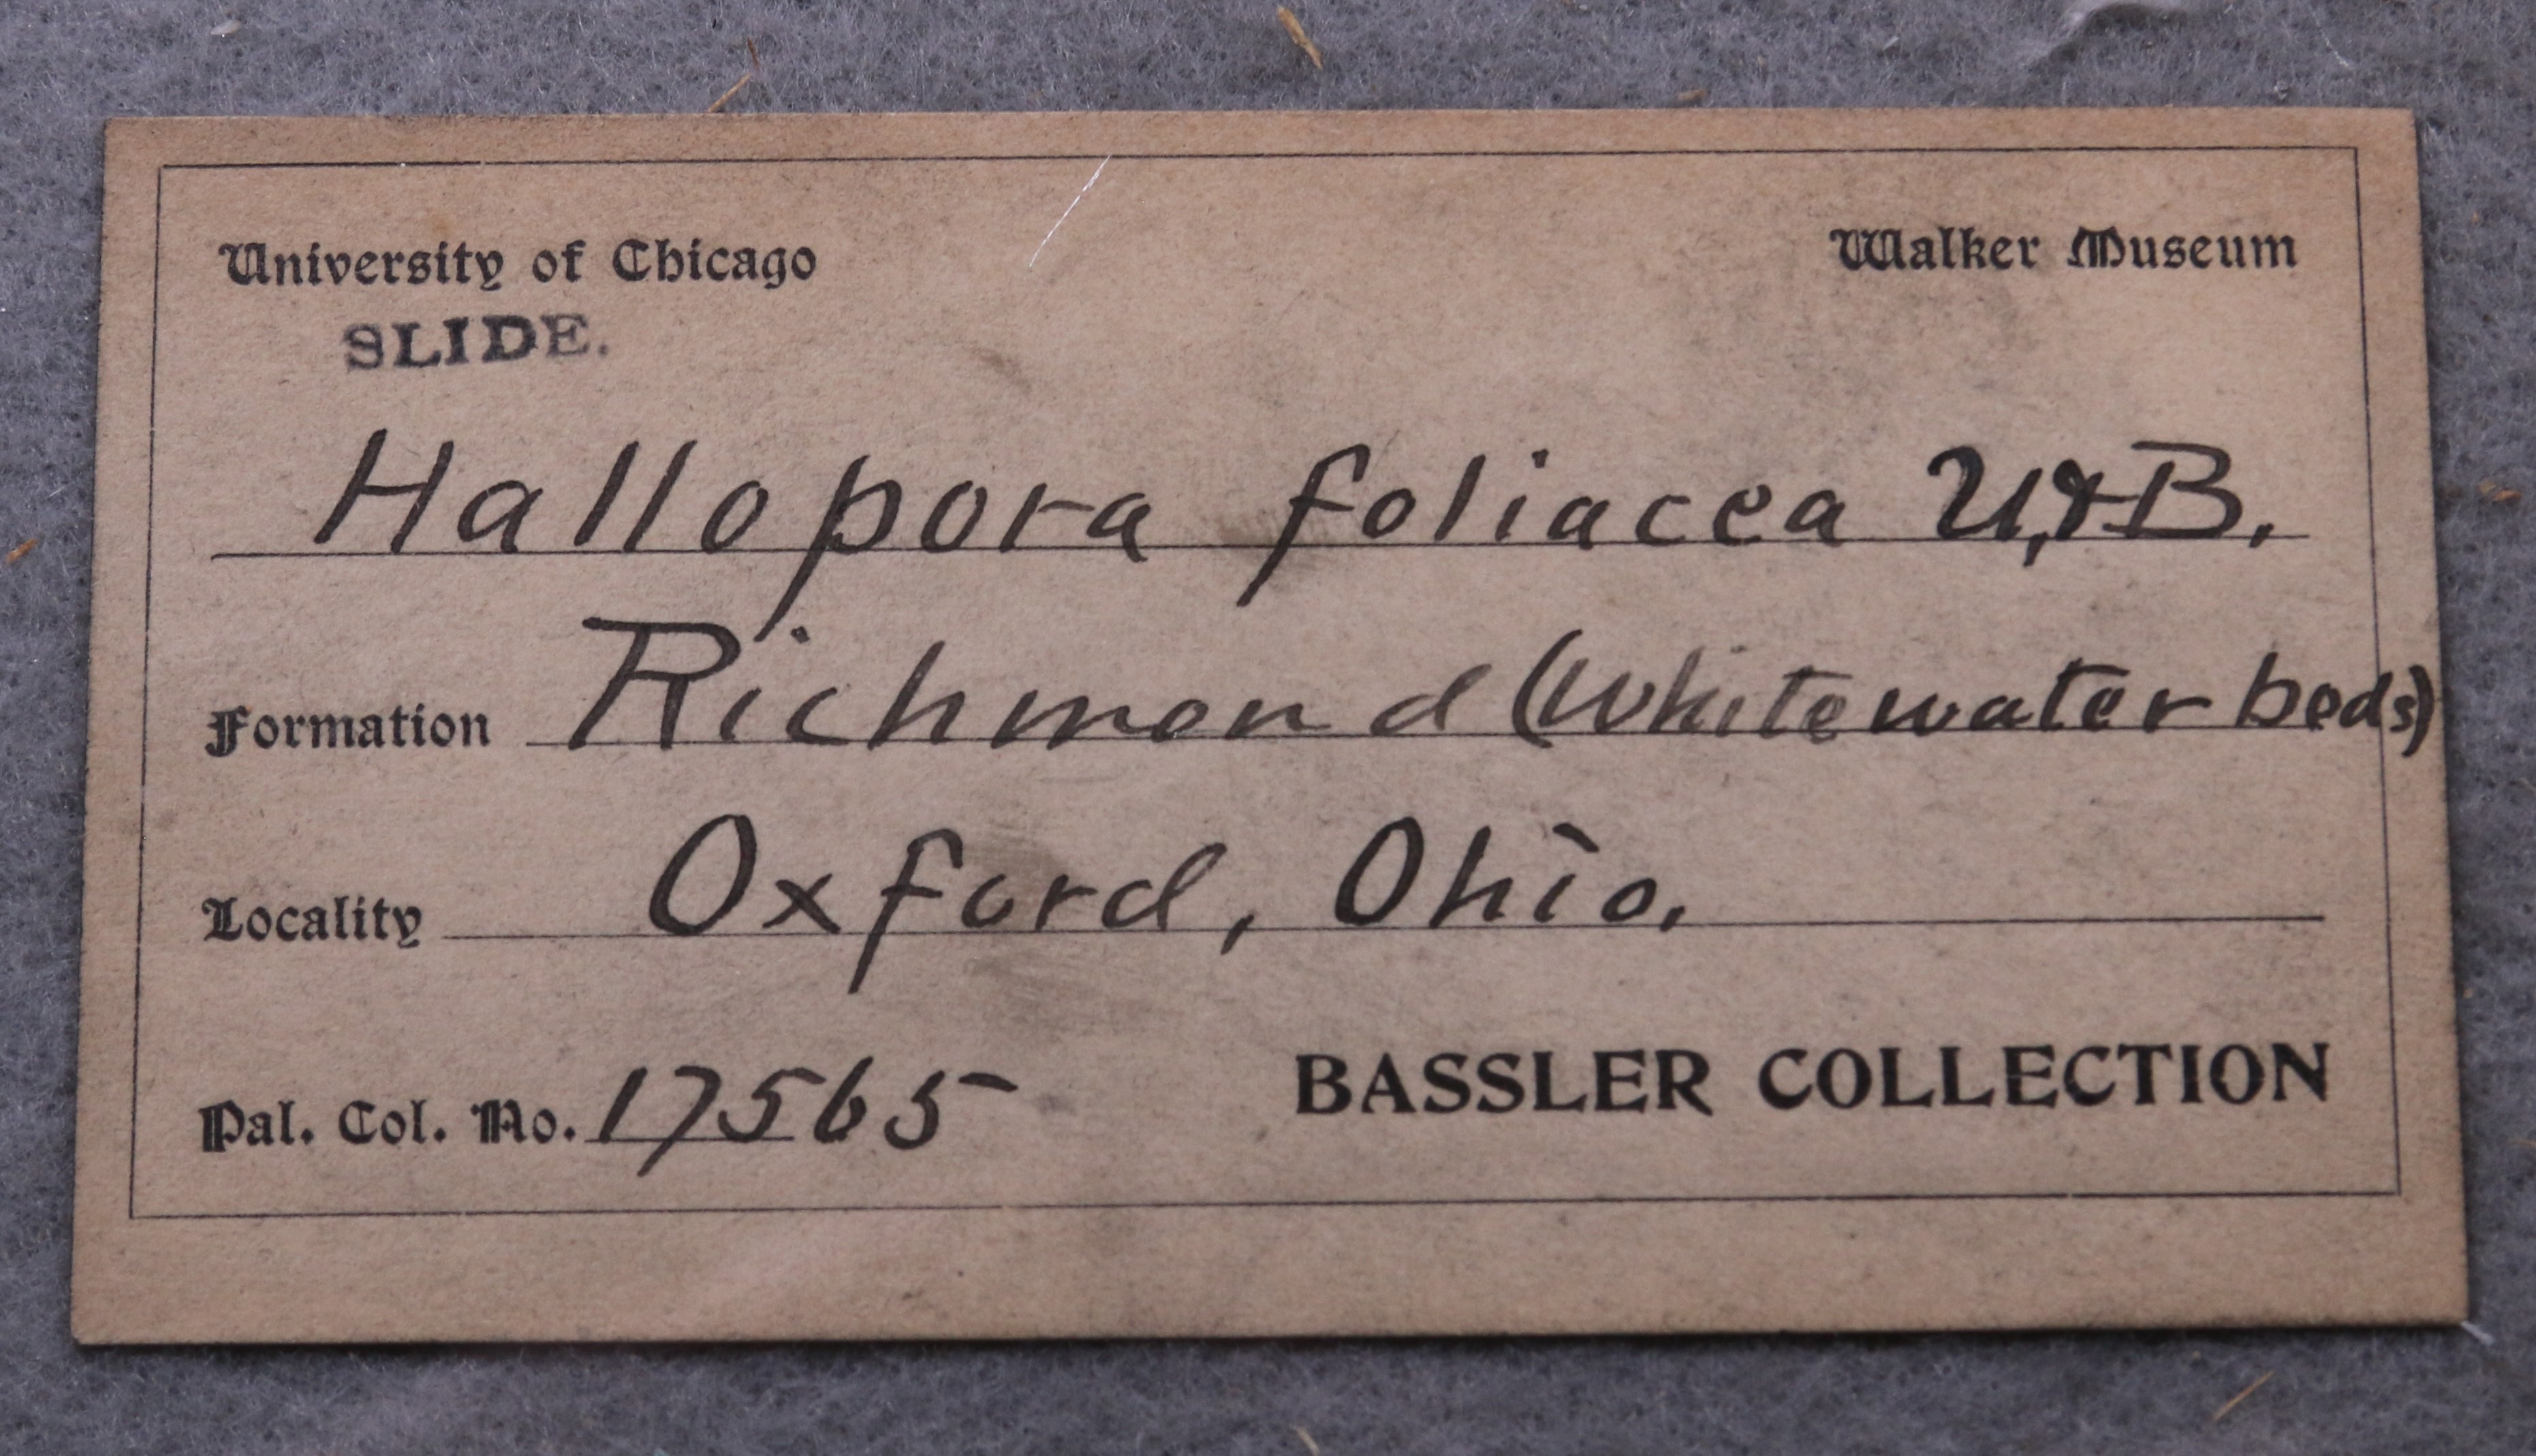 University of Chicago Walker Museum
SLIDE.
Hallopora foliacea U.&B.
Formation Richmond (Whitewater beds)
Locality Oxford, Ohio.
Pal. Col. No. 17565 BASSLER COLLECTION